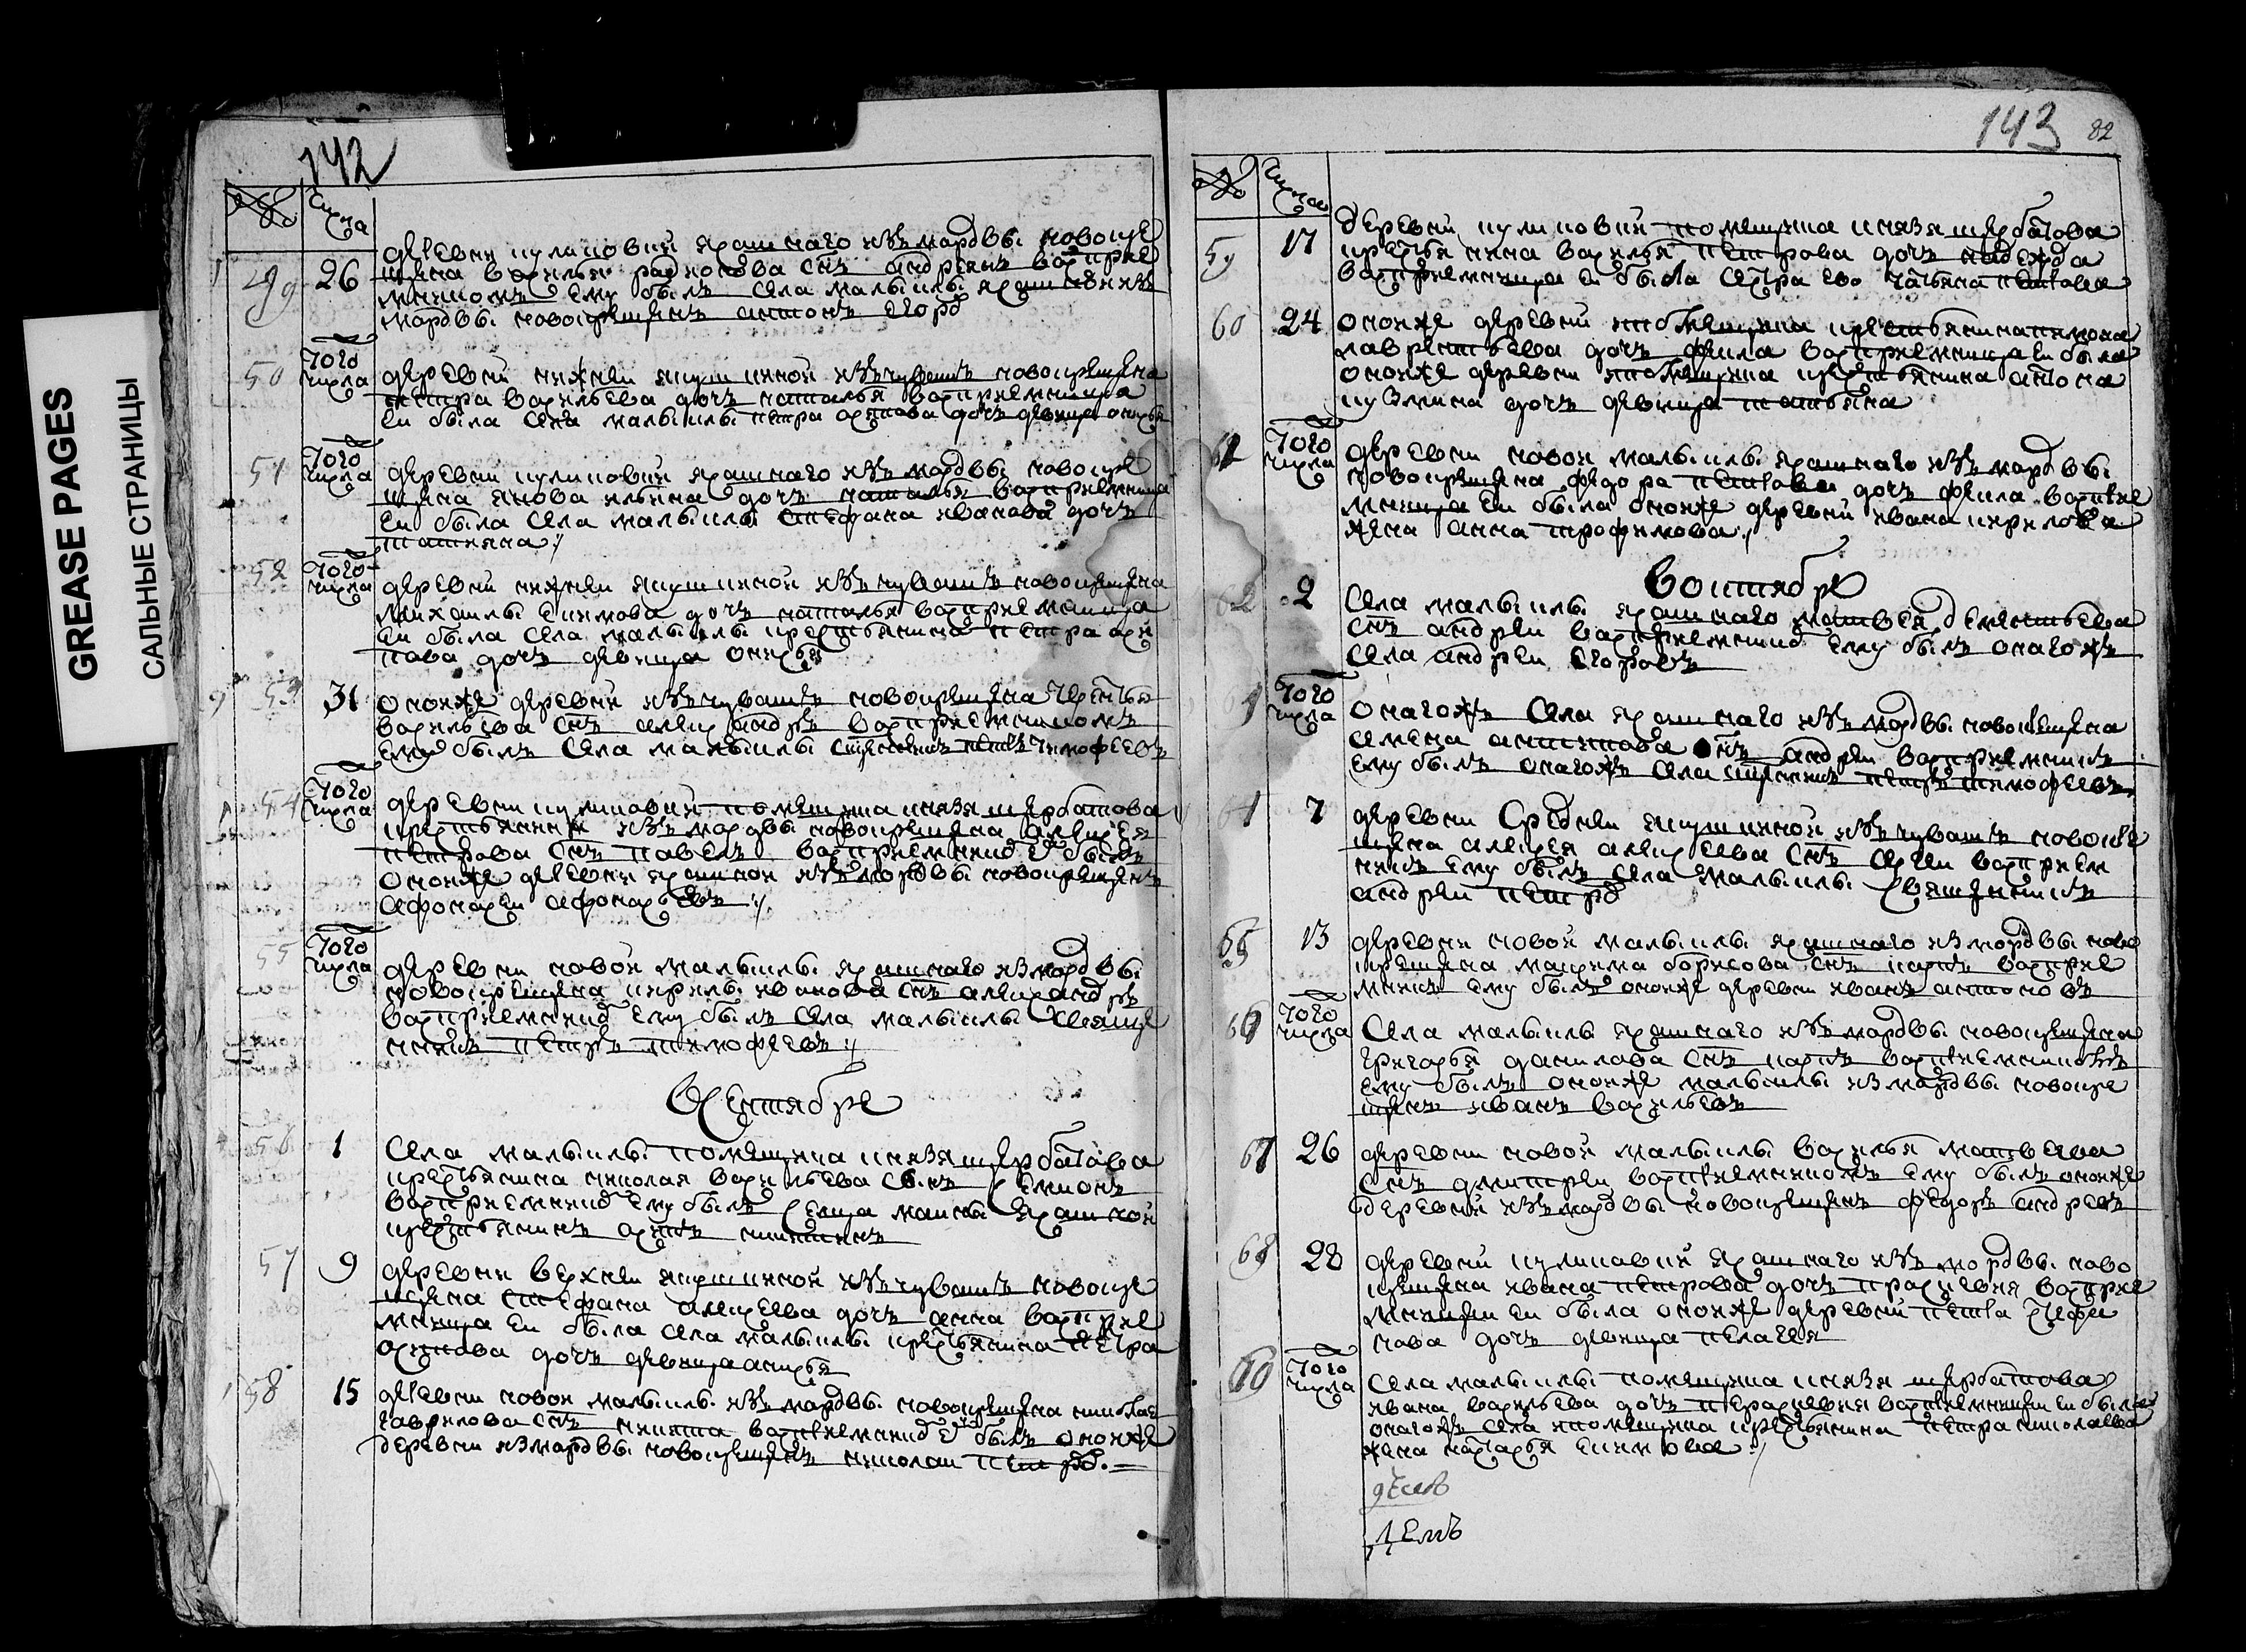 GREASE PAGES
САЛЬНЫЕ СТРАНИЦЫ
142
числа
49 26 деревни куликовки ясашнаго изъ мордвы новокре
щена василья родионова снъ андреянъ восприе
мникомъ ему былъ села малыклы
мордвы новокрещенъ антонъ егоро
50 того числа деревни нижней якушкиной изъ чувашъ новокрещена
петра васильева дочь наталья восприемница
ей была села малыклы петра осипова дочь девица
51 того числа деревни куликовки ясашнаго изъ мордвы новокре
щена якова ильина дочь наталья восприемница
ей была села малыклы стефана иванова дочь
татияна
52 того числа деревни нижней якушкиной изъ чувашъ новокрещена
михаилы екимова дочь наталья восприемница
ей была села малыклы крестьянина петра оси
пова дочь девица
53 31 оноиже деревни изъ чувашъ новокрещена
васильева снъ александръ восприемникомъ
ему былъ села малыклы священникъ петръ тимофеевъ
54 того числа деревни куликовки помещика князя щербатова
крестьянина изъ мордвы новокрещена алексея
петрова снъ павелъ восприемнико е былъ
оноиже деревни ясашнои изъ мордвы новокрещенъ
афонасеи афонасьевъ
55 того числа деревни новои малыклы ясашнаго из мордвы
новокрещена кирилы иванова снъ александръ
восприемнико ему былъ села малыклы свяще
нникъ петръ тимофеевъ
В сентябре
56 1 Села малыклы помещика князя щербатова
крестьянина николая васильева сынъ семионъ
восприемнико ему былъ села маины ясашнои
крестьянинъ осипъ никитинъ
57 9 деревни верхней якушкиной изъ чувашъ новокре
щена стефана алексеева дочь анна восприе
мница ей была села малыклы крестьянина петра
осипова дочь девица
58 15 деревни новои малыклы изъ мордвы новокрещена николая
гаврилова снъ никита восприемнико е былъ оноиже
деревни из мордвы новокрещенъ николаи петро
143
82
числа
59 17 деревни куликовки помещика князя щербатова
крестьянина василья петрова дочь надежда
восприемница ей была сестра ево татьяна петрова
60 24 оноиже деревни помещика крестьянина
лаврентьева дочь фекла восприемница ей была
оноиже деревни помещика крестьянина антона
кузмина дочь девица татьяна
61 того числа деревни новои малыклы ясашнаго изъ мордвы
новокрещена федора петрова дочь фекла восприе
мница ей была оноиже деревни ивана кирилова
жена анна трофимова
В октябре
62 2 Села малыклы ясашнаго матвея дементьева
снъ андреи восприемнико ему былъ оногожъ
села андреи егоровъ
63 того числа оногожъ села ясашнаго изъ мордвы новокрещена
семена снъ андреи восприемникъ
ему былъ оногожъ села священникъ петръ тимофеевъ
64 7 деревни средней якушкиной изъ чувашъ новокре
щена алексея алексеева снъ сергеи восприем
никъ ему былъ села малыклы священникъ
андреи петро
65 13 деревни новои малыклы ясашнаго из мордвы ново
крещена максима борисова снъ карпъ восприе
мникъ ему былъ оноиже деревни иванъ антоновъ
66 того числа Села малыклы ясашнаго изъ мордвы новокрещена
григорья данилова снъ карпъ восприемникомъ
ему былъ оноиже малыклы из мордвы новокре
щенъ иванъ васильевъ
67 26 деревни новои малыклы василья матвеева
снъ дмитреи восприемникомъ ему былъ оноиже
деревни изъ мордвы новокрещенъ федоръ андреевъ
68 28 деревни куликовки ясашнаго изъ мордвы ново
крещена ивана петрова дочь прасковия восприе
мницеи ей была оноиже деревни петра
дочь девица пелагея
69 того числа Села малыклы помещика князя щербатова
ивана васильева дочь парасковия восприемницеи ей была
оногожъ села помещика крестьянина петра николаева
жена настасья екимова